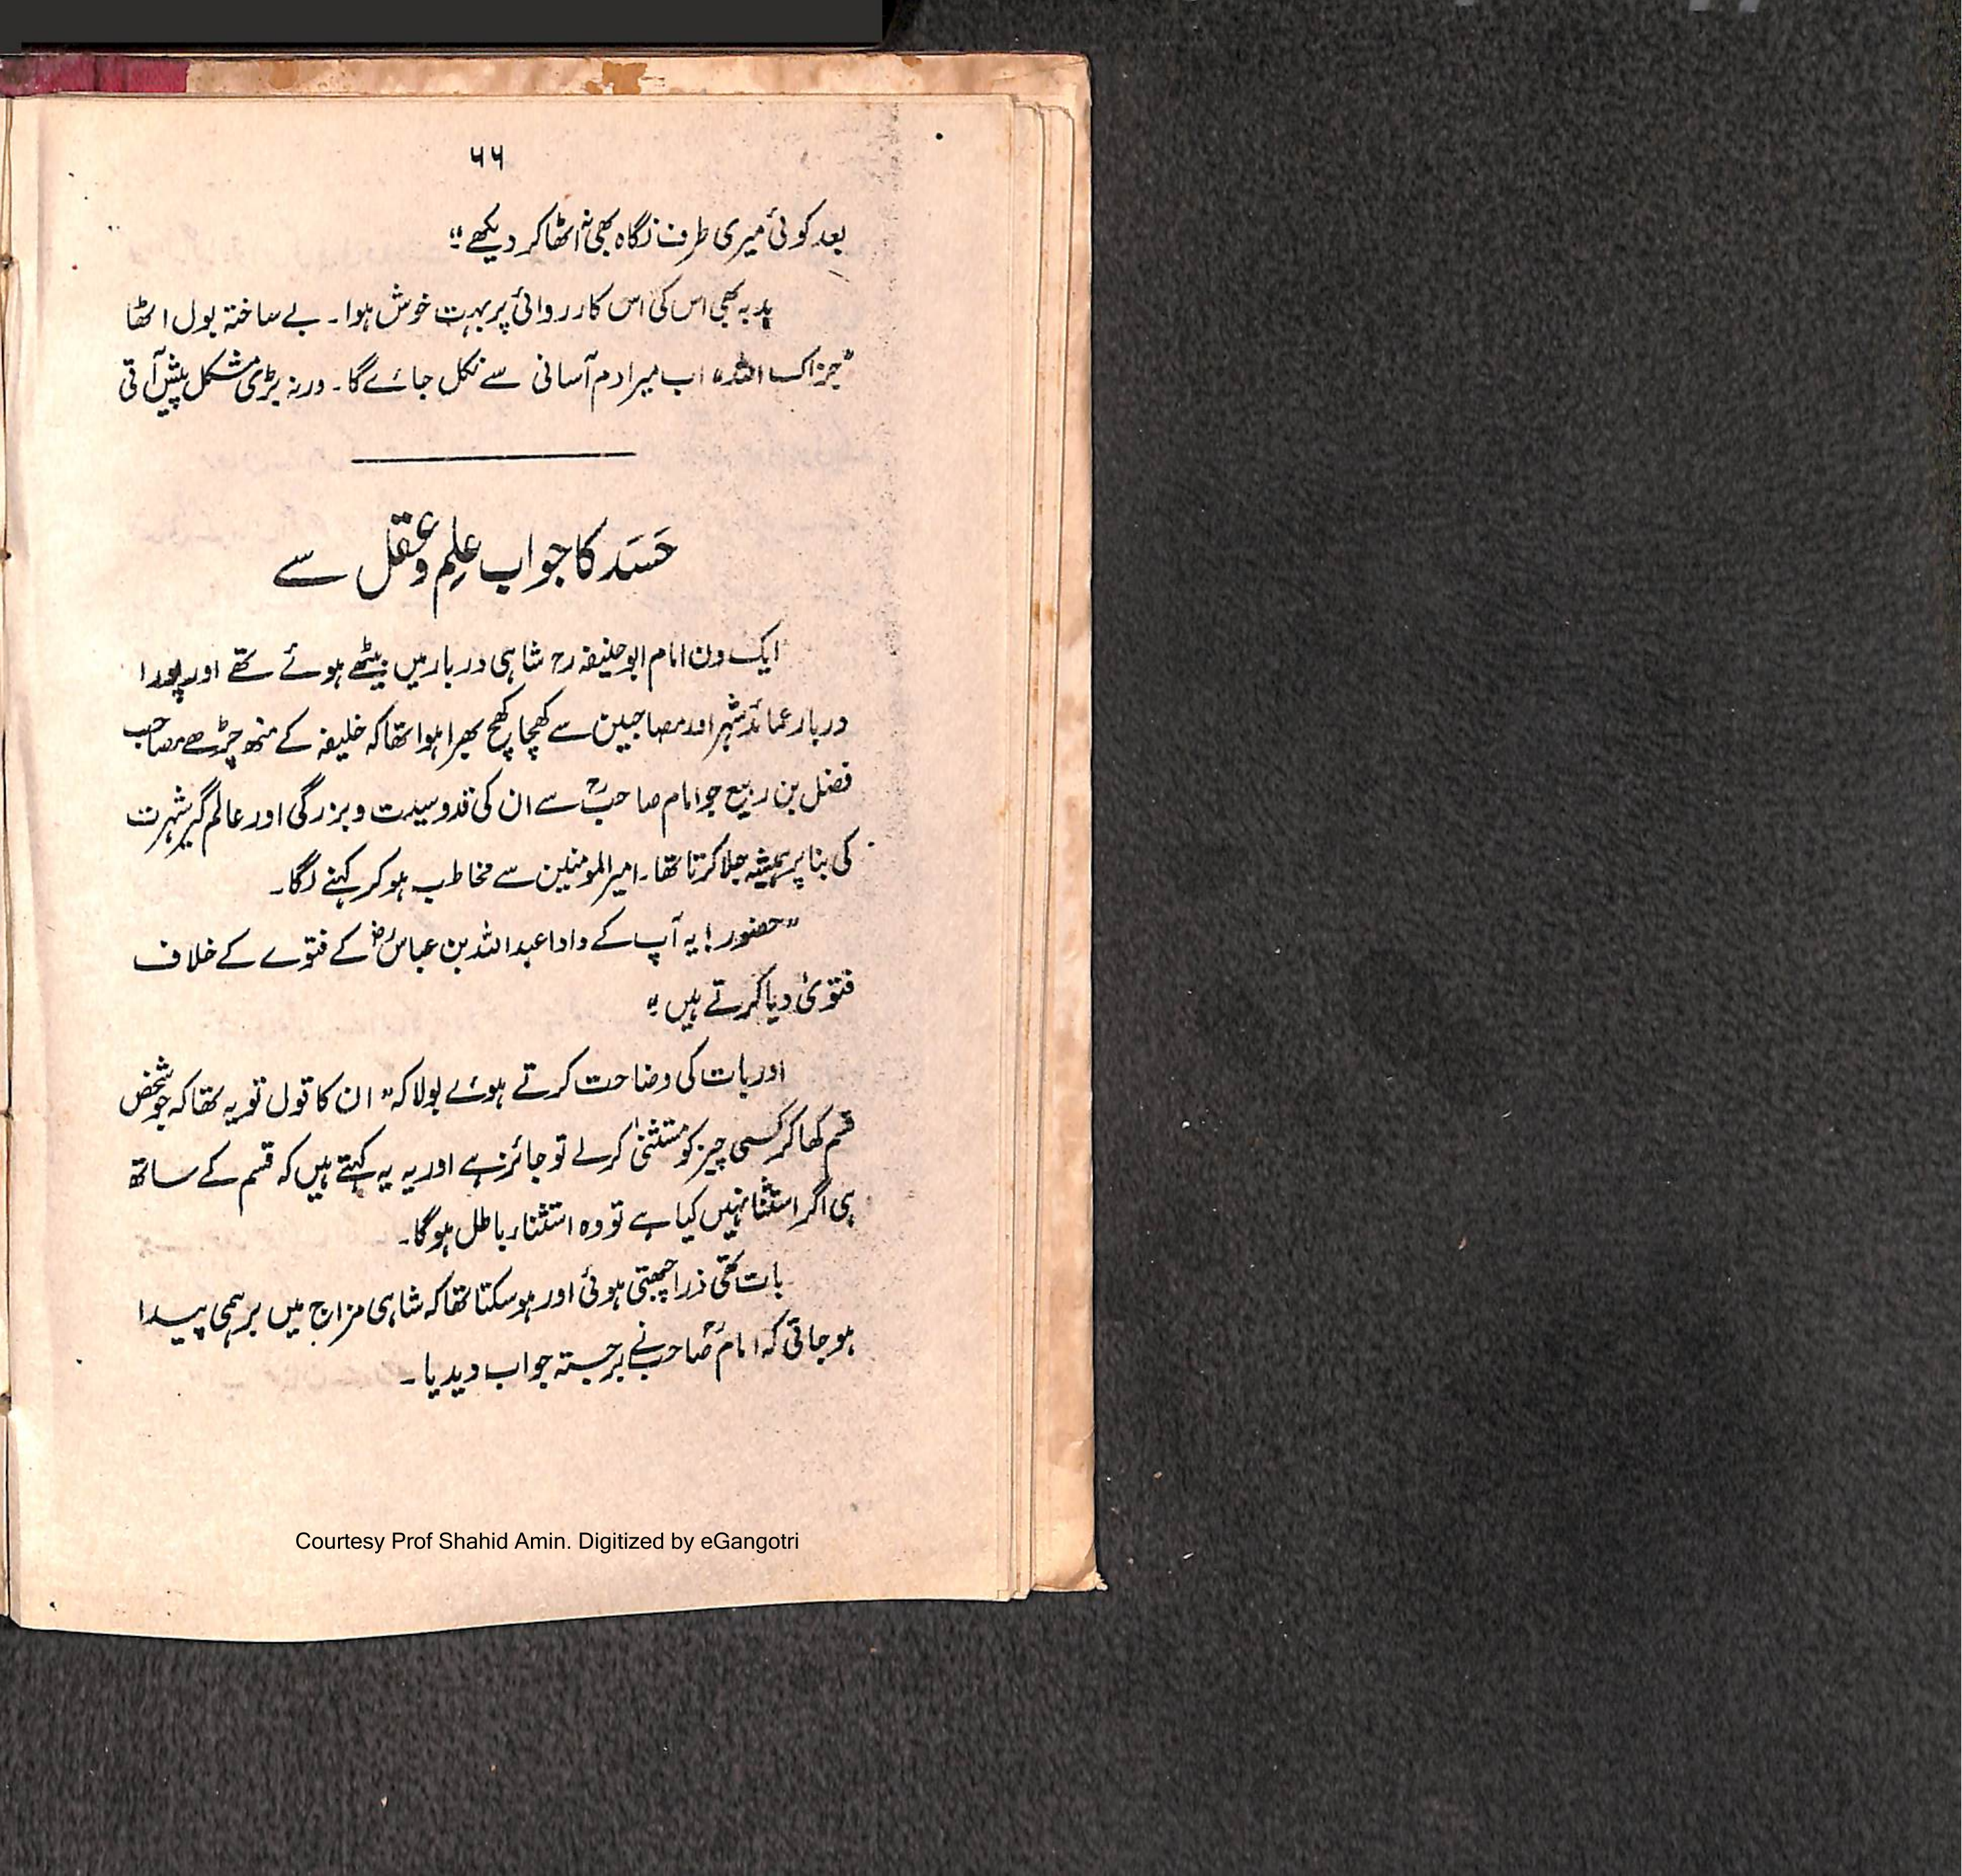 ۶۶
بعد کوئی میری طرف نگاہ بھی نہ اٹھا کر دیکھے“
ہدبہ بھی اس کی اس کارروائی پر بہت خوش ہوا۔ بے ساختہ بول اٹھا
”جزاک اللہ“ اب میرا دم آسانی سے نکل جائے گا۔ ورنہ بڑی مشکل پیش آتی
حَسَد کا جواب علِم و عقل سے
ایک دن امام ابوحنیفہ رح شاہی دربار میں بیٹھے ہوئے تھے اور پورا
دربار عمائد شہر اور مصاحبین سے کھچا کھچ بھرا ہوا تھا کہ خلیفہ کے منھ چڑھے مصاحب
فضل بن ربیع جو امام صاحبؒ سے ان کی قدوسیت و بزرگی اور عالم گیر شہرت
کی بنا پر ہمیشہ جلا کرتا تھا۔ امیر المومنین سے مخاطب ہو کر کہنے لگا۔
”حضور! یہ آپ کے دادا عبد اللہ بن عباسؓ کے فتوے کے خلاف
فتویٰ دیا کرتے ہیں“
اور بات کی وضاحت کرتے ہوئے بولا کہ ”ان کا قول تو یہ تھا کہ جو شخص
قسم کھا کر کسی چیز کو مستثنیٰ کرلے تو جائز ہے اور یہ یہ کہتے ہیں کہ قسم کے ساتھ
ہی اگر استثنا نہیں کیا ہے تو وہ استثناء باطل ہوگا۔
بات تھی ذرا چھبتی ہوئی اور ہو سکتا تھا کہ شاہی مزاج میں برہمی پیدا
ہو جاتی کہ امام صاحبؒ نے برجستہ جواب دیدیا۔
Courtesy Prof Shahid Amin. Digitized by eGangotri